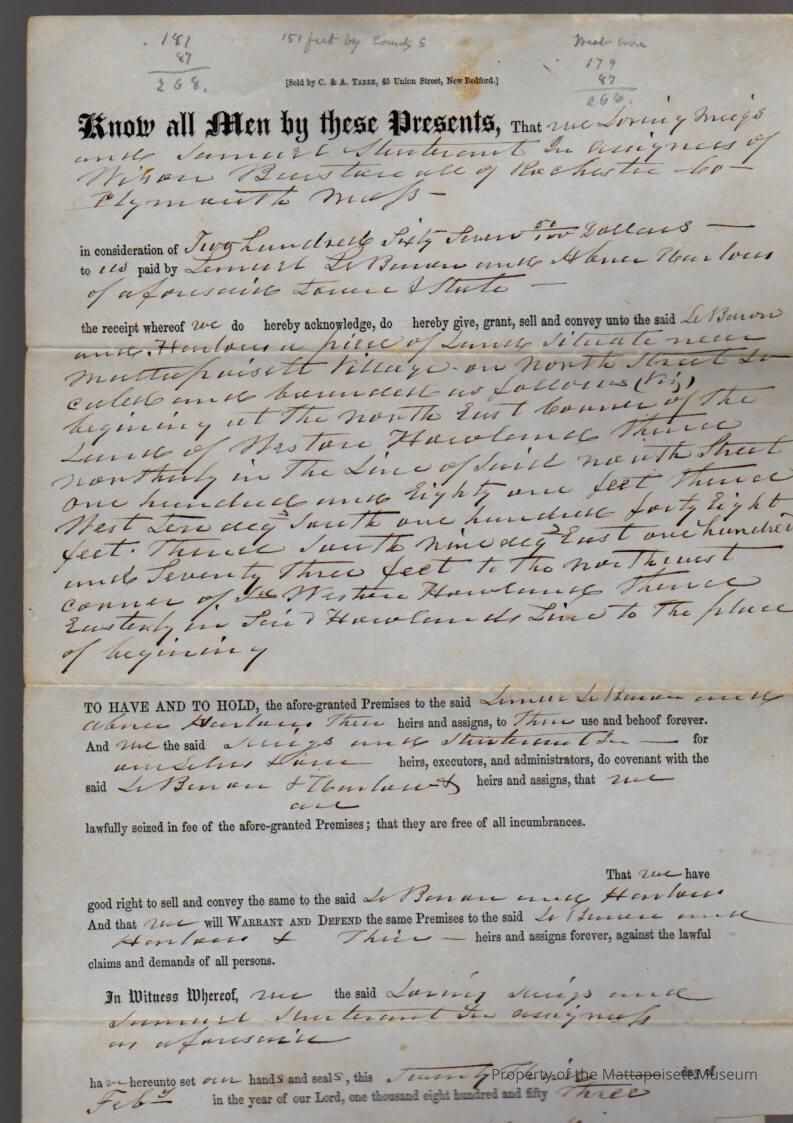 181
87
268.
151 feet by County S
West line
179
87
266.
[Sold by C. & A. Taber, 45 Union Street, New Bedford.]
Know all Men by these Presents, That we Loring Meigs
and Samuel Sturtevant Jr assignees of
Wilson Barstow all of Rochester Co
Plymouth Mass
in consideration of Two hundred Sixty Seven 50/100 Dollars
to us paid by Lemuel LeBaron and Abner Harlow
of aforesaid Town & State
the receipt whereof we do hereby acknowledge, do hereby give, grant, sell and convey unto the said LeBaron
and Harlow a piece of Land Situate near
Mattapoisett Village on North Street So
called and bounded as follows (viz)
begining at the North East Corner of the
Land of Weston Howland Thence
northerly in The Line of Said North Street
one hundred and Eighty one feet Thence
West Ten degs South one hundred forty Eight
feet. Thence South nine degs East one hundred
and Seventy Three feet to the northwest
corner of Sd Weston Howland Thence
Easterly in Said Howlands Line to The place
of begining
TO HAVE AND TO HOLD, the afore-granted Premises to the said Lemuel LeBaron and
Abner Harlow Their heirs and assigns, to Their use and behoof forever.
And we the said Meigs and Sturtevant Jr for
ourselves & our heirs, executors, and administrators, do covenant with the
said LeBaron & Harlow & heirs and assigns, that we
are
lawfully seized in fee of the afore-granted Premises; that they are free of all incumbrances.
That we have
good right to sell and convey the same to the said LeBaron and Harlow
And that we will WARRANT AND DEFEND the same Premises to the said LeBaron and
Harlow & Their heirs and assigns forever, against the lawful
claims and demands of all persons.
In Witness Whereof, we the said Loring Meigs and
Samuel Sturtevant Jr assignees
as aforesaid
have hereunto set our hands and seals, this Twenty Third day of
Feby in the year of our Lord, one thousand eight hundred and fifty Three
Property of the Mattapoisett Museum